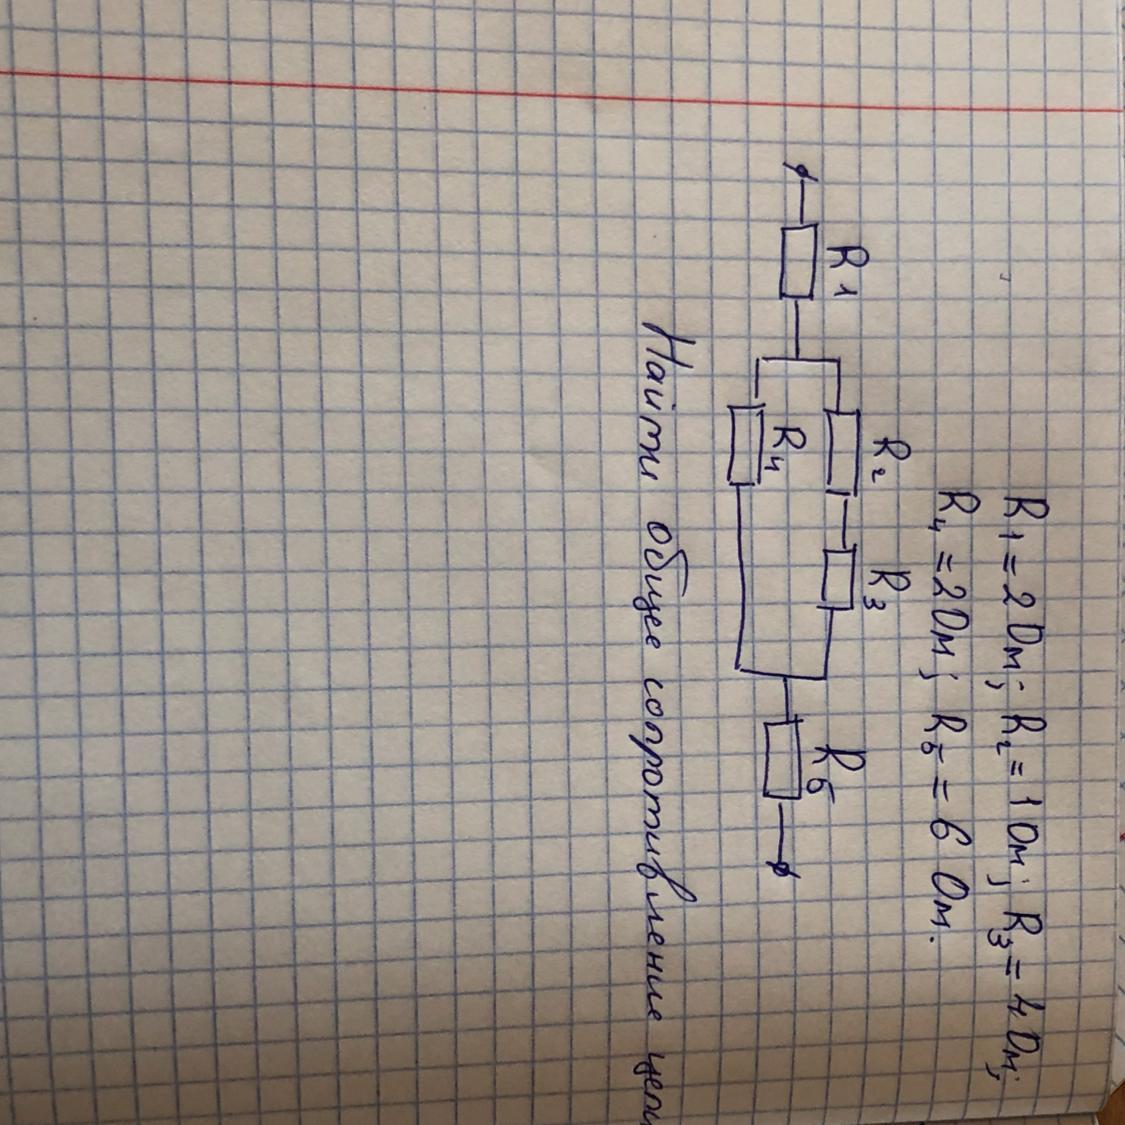 R1 = 2 Ом; R2 = 1 Ом; R3 = 4 Ом;
R4 = 2 Ом; R5 = 6 Ом.
R1
R2
R3
R4
R5
Найти общее сопротивление цепи